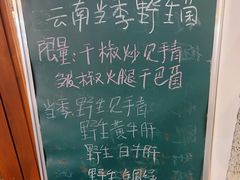 云南当季野生菌
限量：干椒炒见手青
皱椒火腿干巴菌
当季野生见手青
野生黄牛肝
野生白牛肝
野生鸡枞